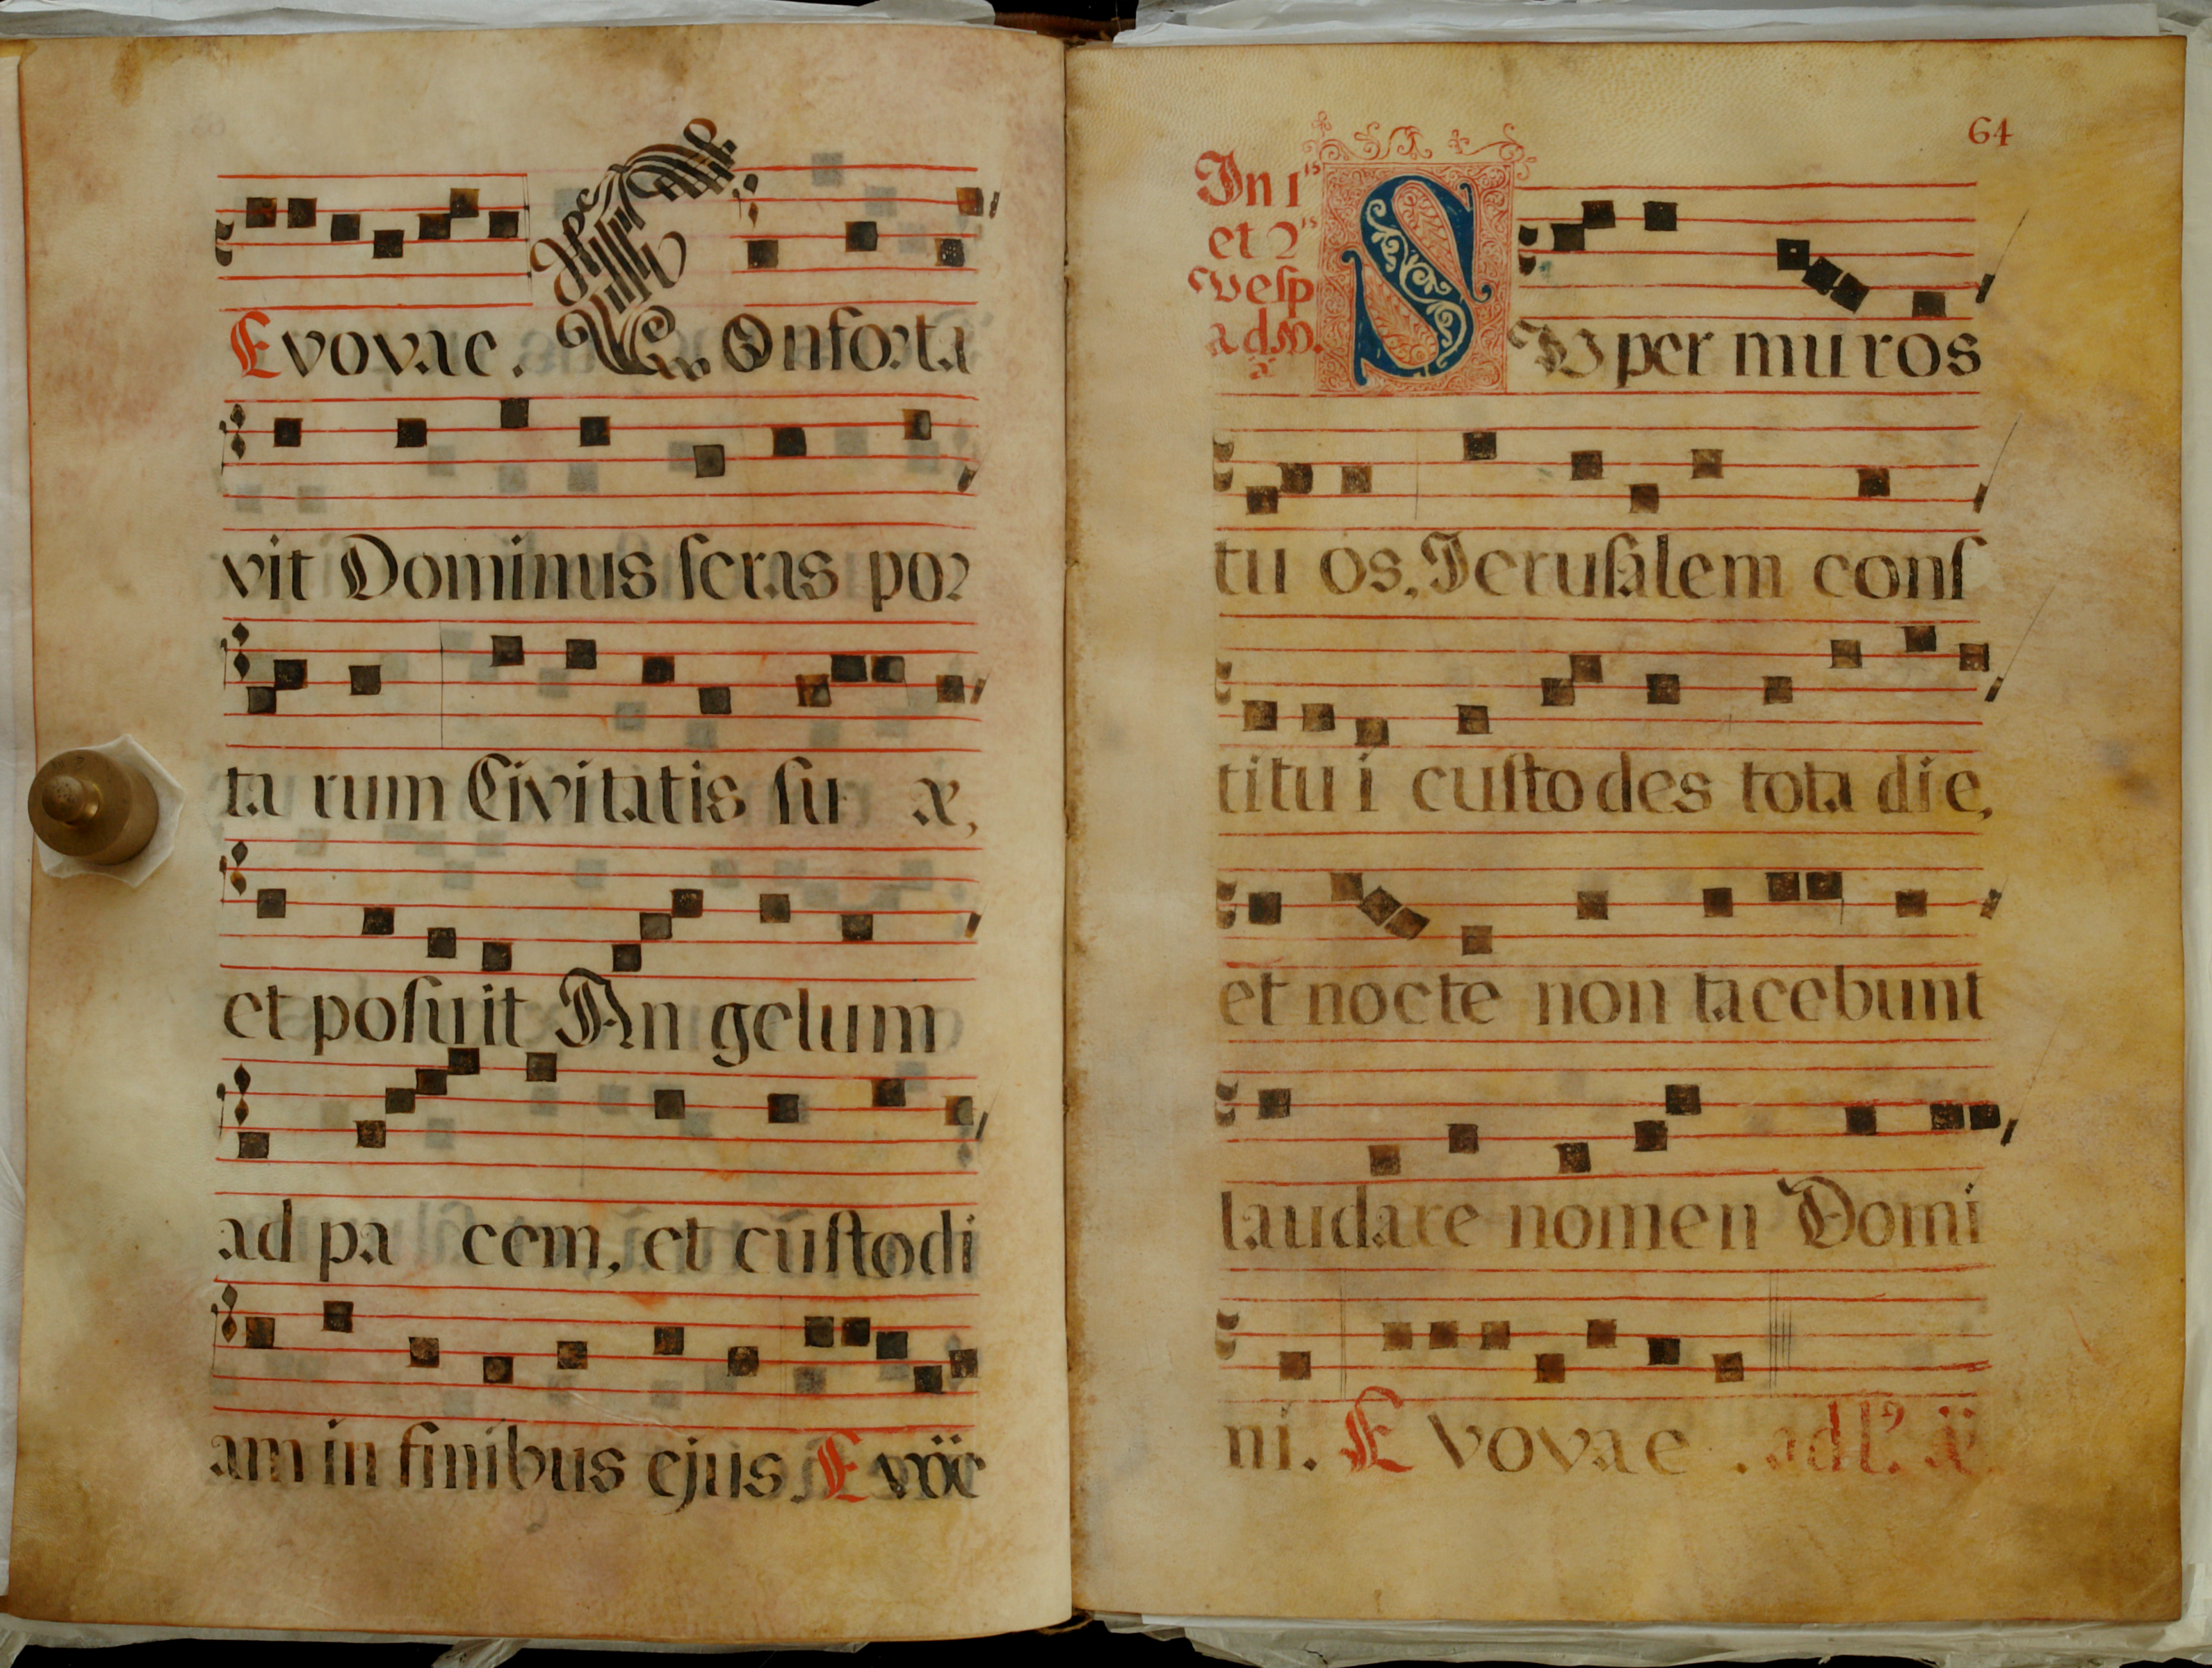 Evovae. COnforta
vit Dominus seras por
ta rum Civitatis su æ,
et posuit Angelum
ad pa cem, et custodi
am in finibus ejus. Evöë
64
In 1ⁱˢ
et 2ⁱˢ
vesp
ad
SUper muros
tu os, Jerusalem cons
titu i custo des tota die,
et nocte non tacebunt
laudare nomen Domi
ni. Evovae.